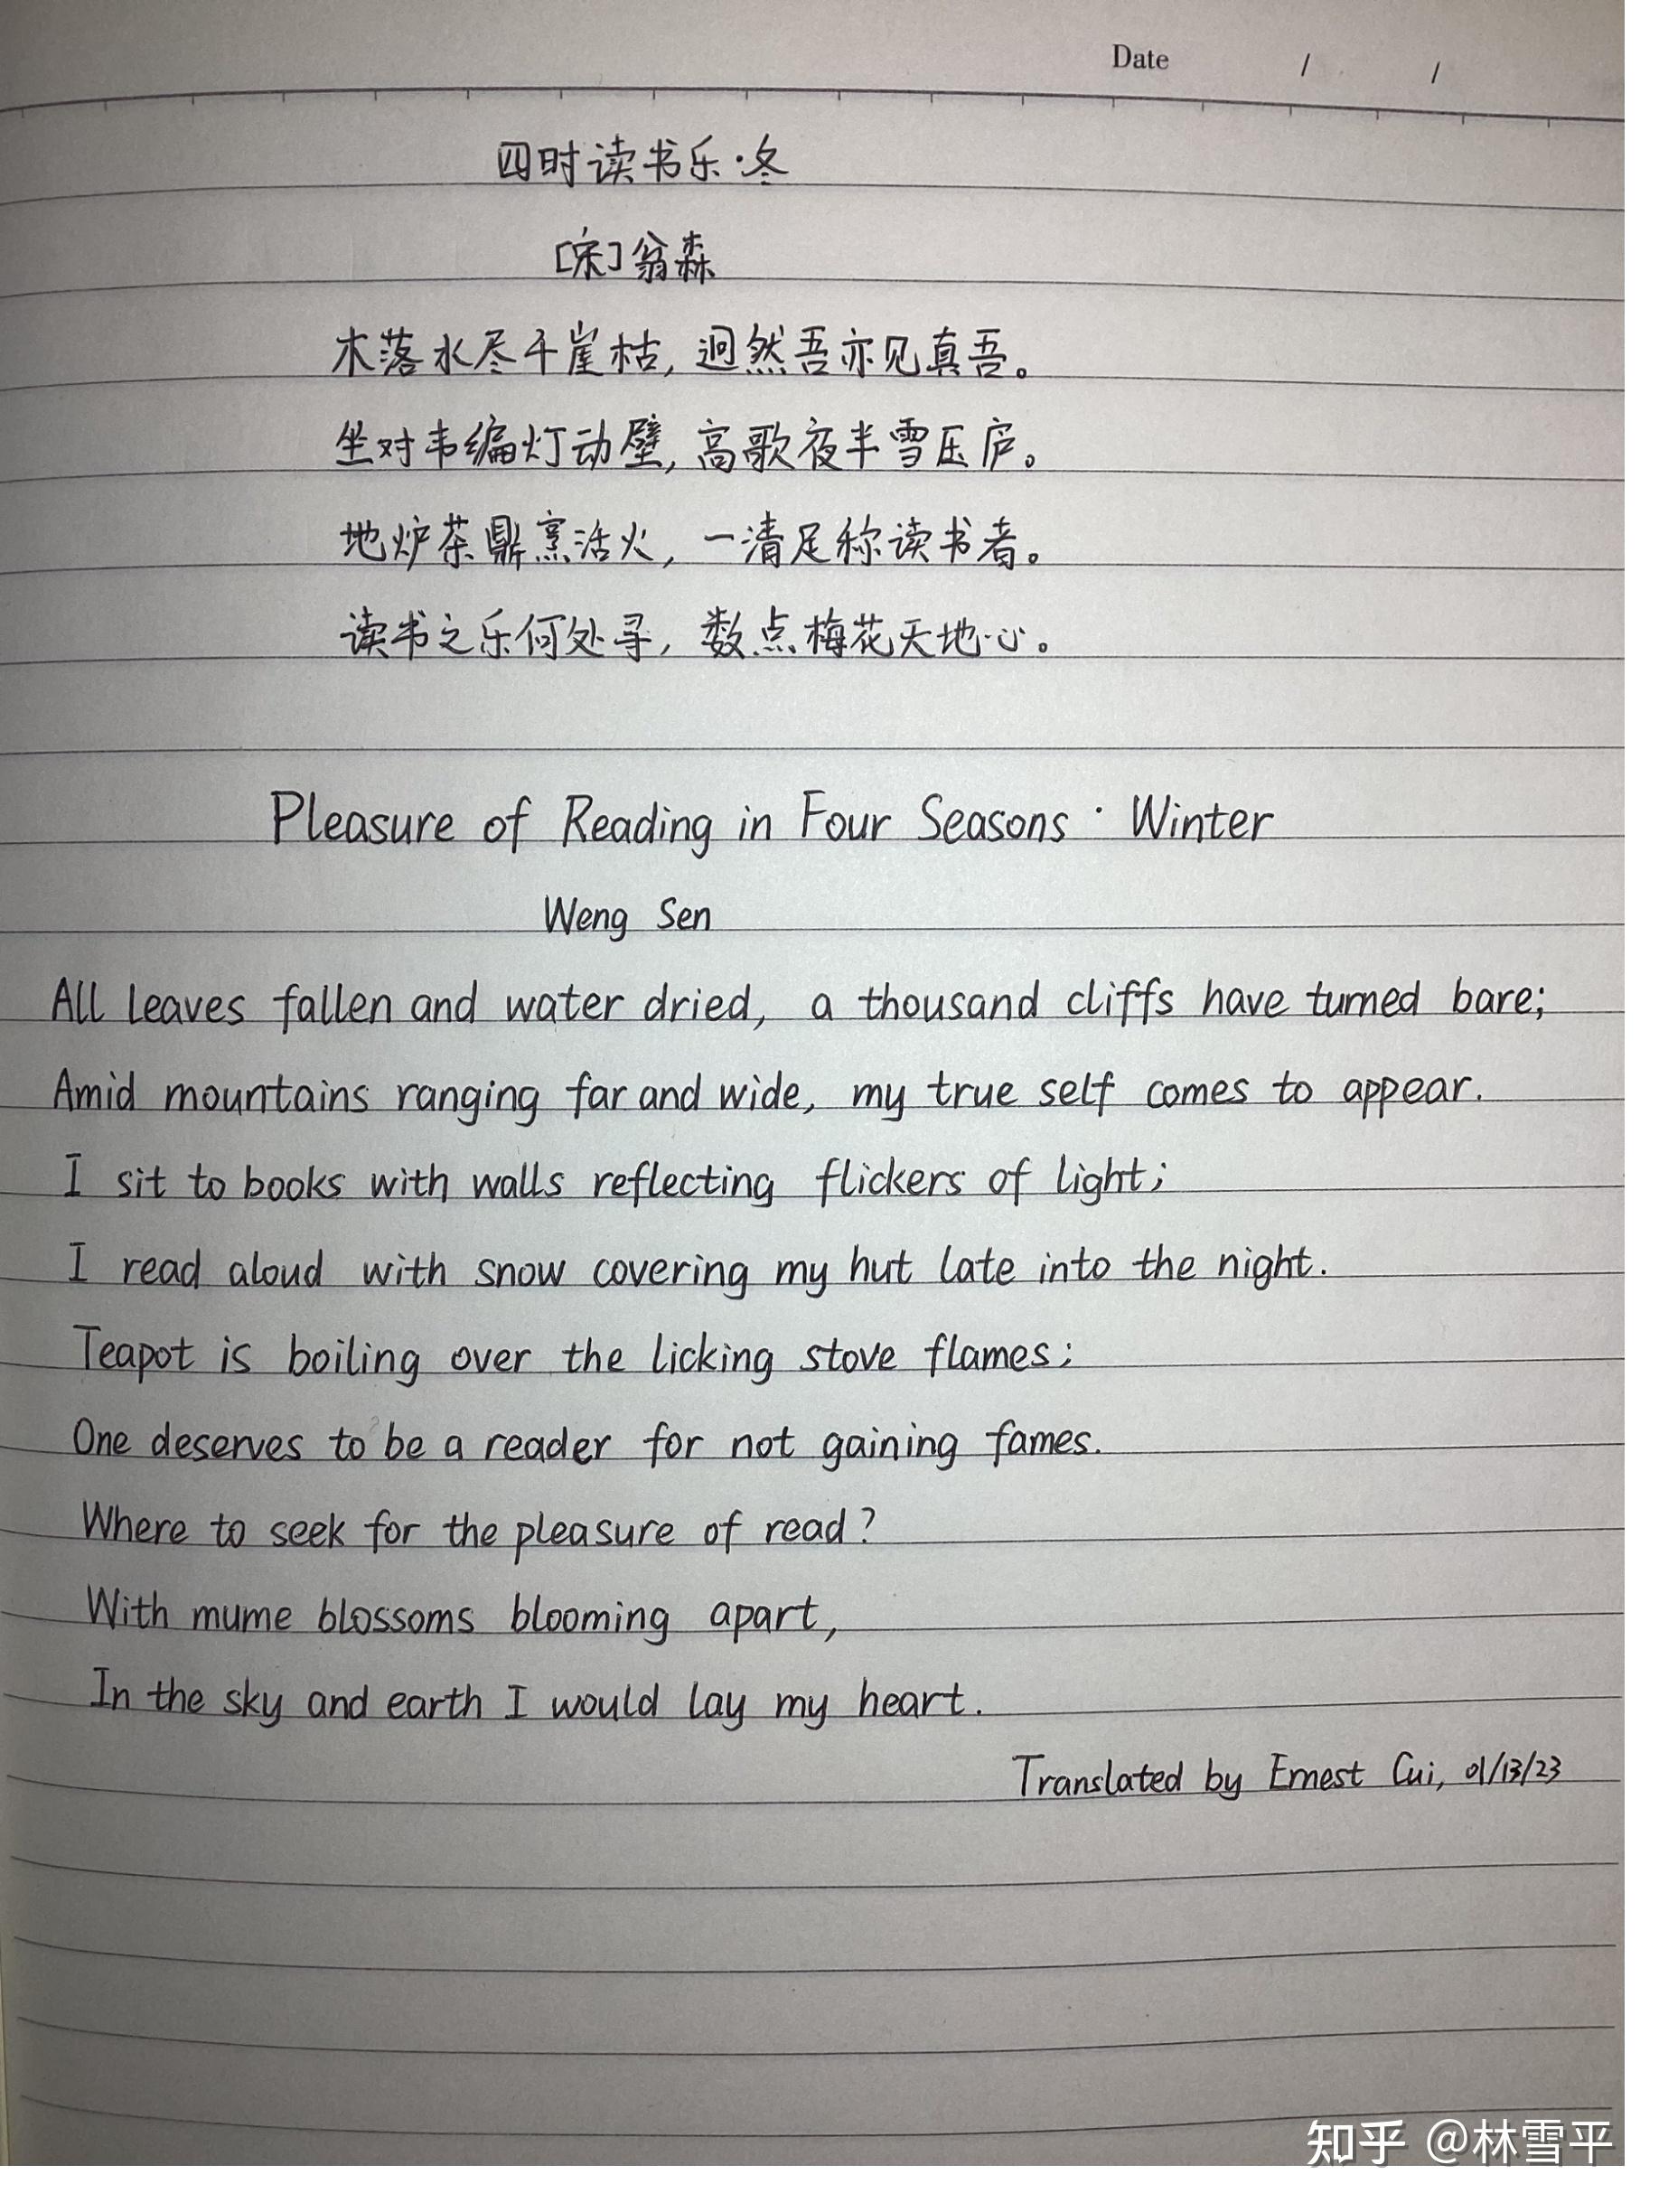 Date / /
四时读书乐·冬
[宋]翁森
木落水尽千崖枯,迥然吾亦见真吾。
坐对韦编灯动壁,高歌夜半雪压庐。
地炉茶鼎烹活火,一清足称读书者。
读书之乐何处寻,数点梅花天地心。
Pleasure of Reading in Four Seasons · Winter
Weng Sen
All leaves fallen and water dried, a thousand cliffs have turned bare;
Amid mountains ranging far and wide, my true self comes to appear.
I sit to books with walls reflecting flickers of light;
I read aloud with snow covering my hut late into the night.
Teapot is boiling over the licking stove flames;
One deserves to be a reader for not gaining fames.
Where to seek for the pleasure of read?
With mume blossoms blooming apart,
In the sky and earth I would lay my heart.
Translated by Ernest Cui, 01/13/23
知乎 @林雪平